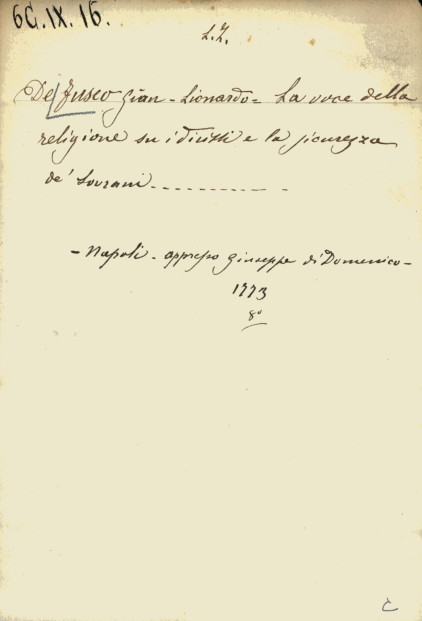 6C.IX.16.
L.Z.
De Fusco Gian-Lionardo= La voce della
religione su i diritti e la sicurezza
de' Sovrani
- Napoli - appresso Giuseppe di Domenico -
1773
8°
C